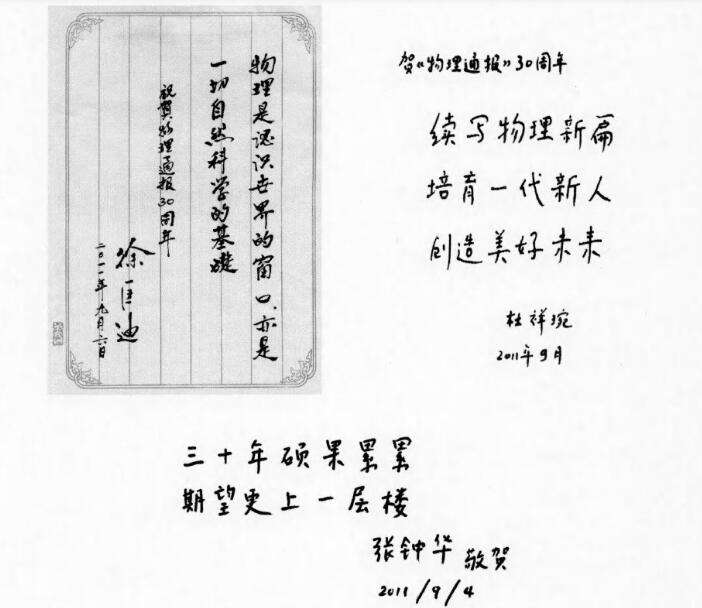 物理是认识世界的窗口、亦是
一切自然科学的基礎
祝賀物理通报30周年
徐匡迪
二〇一一年九月六日
贺《物理通报》30周年
续写物理新篇
培育一代新人
创造美好未来
杜祥琬
2011年9月
三十年硕果累累
期望更上一层楼
张钟华 敬贺
2011/9/4